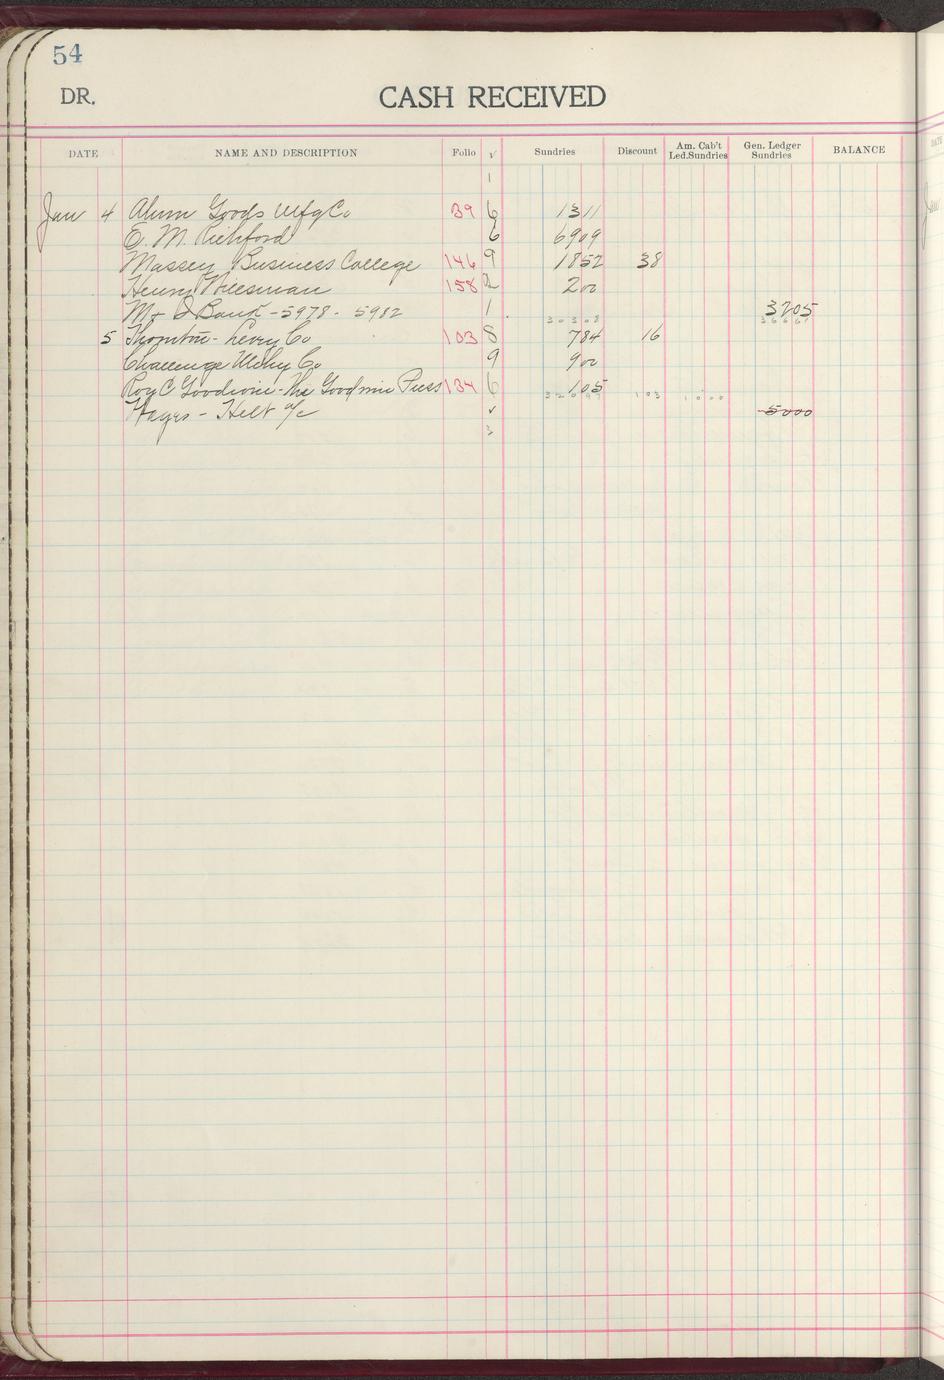 54
DR. CASH RECEIVED
DATE NAME AND DESCRIPTION Folio √ Sundries Discount Am. Cab't Led.Sundries Gen. Ledger Sundries BALANCE
1
Jan 4 Alum Goods Mfg Co 39 6 1311
E. M. Richford 6 6909
Massey Business College 146 9 1852 38
Henry Wiesman 158 2 200
M & D Bank - 5978 - 5982 1 30308 3205
5 Thornton - Levey Co 103 8 784 16
Challenge Mchy Co 9 900
Roy C Goodwin - The Goodwin Press 134 6 105
Hayes - Helt a/c √ 32097 103 1000 5000
3